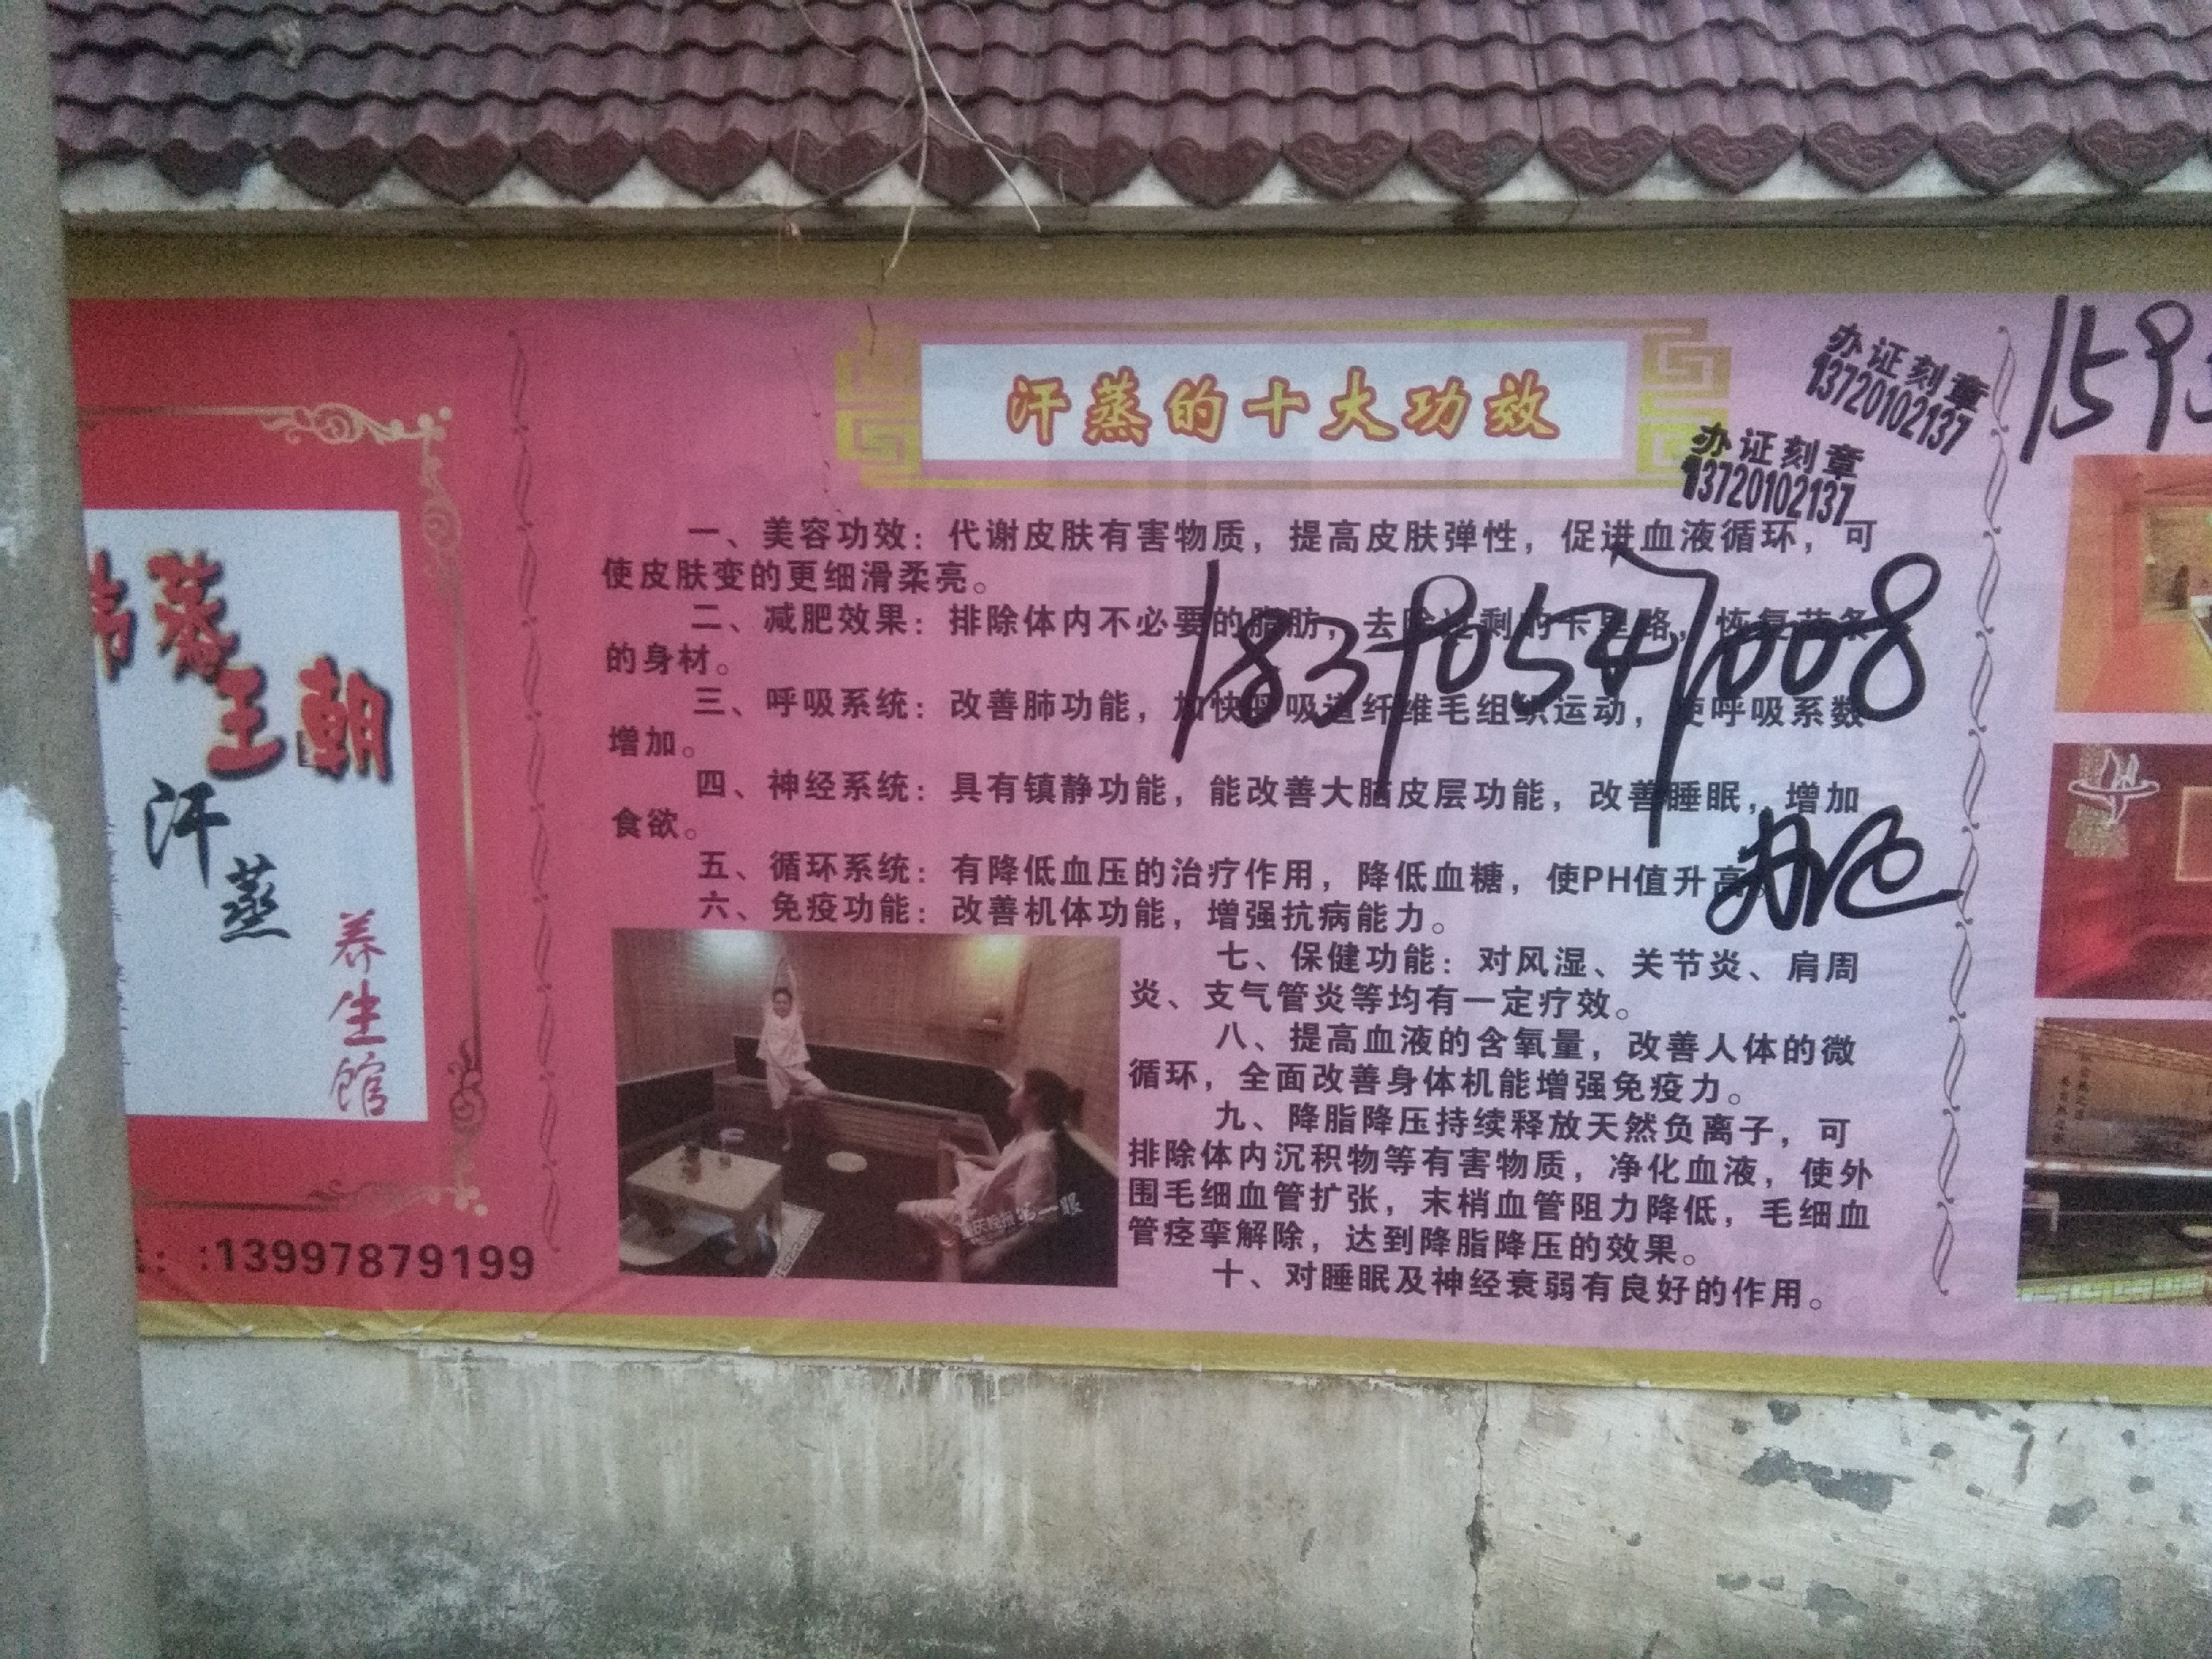 蒸
王朝
汗
蒸
养
生
馆
:13997879199
汗蒸的十大功效
办证刻章
13720102137
办证刻章
13720102137
一、美容功效：代谢皮肤有害物质，提高皮肤弹性，促进血液循环，可
使皮肤变的更细滑柔亮。
二、减肥效果：排除体内不必要的脂肪，去除过剩的卡里路，恢复苗条
的身材。
三、呼吸系统：改善肺功能，加快呼吸道纤维毛组织运动，使呼吸系数
增加。
四、神经系统：具有镇静功能，能改善大脑皮层功能，改善睡眠，增加
食欲。
五、循环系统：有降低血压的治疗作用，降低血糖，使PH值升高
六、免疫功能：改善机体功能，增强抗病能力。
七、保健功能：对风湿、关节炎、肩周
炎、支气管炎等均有一定疗效。
八、提高血液的含氧量，改善人体的微
循环，全面改善身体机能增强免疫力。
九、降脂降压持续释放天然负离子，可
排除体内沉积物等有害物质，净化血液，使外
围毛细血管扩张，末梢血管阻力降低，毛细血
管痉挛解除，达到降脂降压的效果。
十、对睡眠及神经衰弱有良好的作用。
第一眼